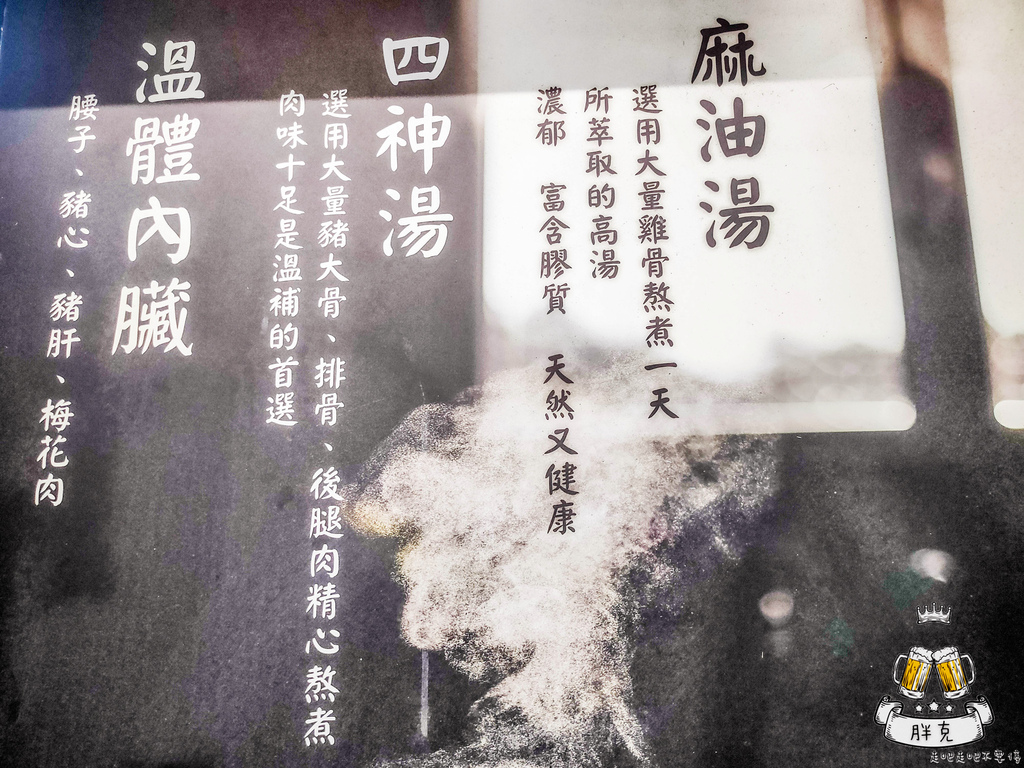 麻油湯
選用大量雞骨熬煮一天
所萃取的高湯
濃郁 富含膠質 天然又健康
四神湯
選用大量豬大骨、排骨、後腿肉精心熬煮
肉味十足是溫補的首選
溫體內臟
腰子、豬心、豬肝、梅花肉
胖克
走吧走吧不要停